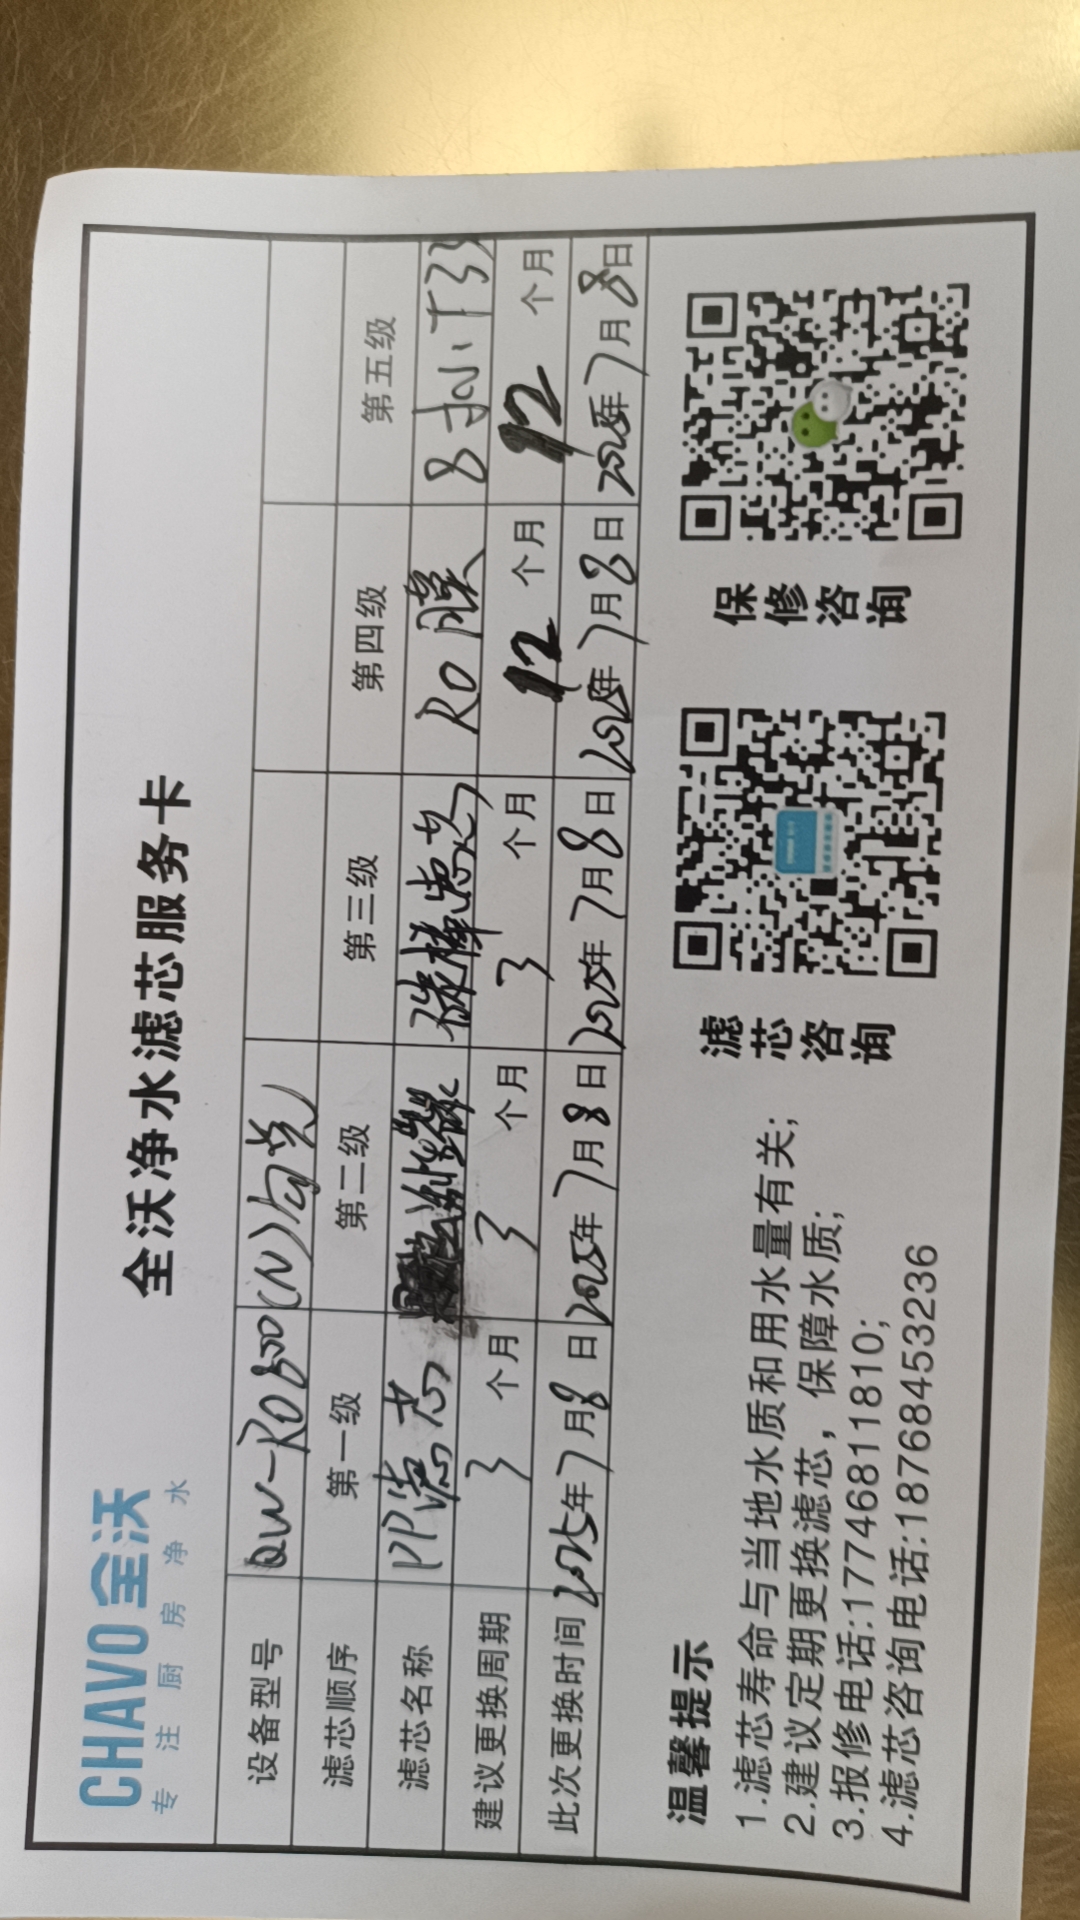 CHAVO 全沃
专注厨房净水
全沃净水滤芯服务卡
设备型号 QW-RO800(N)
滤芯顺序 第一级 第二级 第三级 第四级 第五级
滤芯名称 PP滤芯 碳棒滤芯 RO膜 8 T33
建议更换周期 3个月 3个月 3个月 12个月 12个月
此次更换时间 2025年7月8日 2025年7月8日 2025年7月8日 2025年7月8日 2025年7月8日
温馨提示
1.滤芯寿命与当地水质和用水量有关;
2.建议定期更换滤芯，保障水质;
3.报修电话:17746811810;
4.滤芯咨询电话:18768453236
滤芯咨询
保修咨询